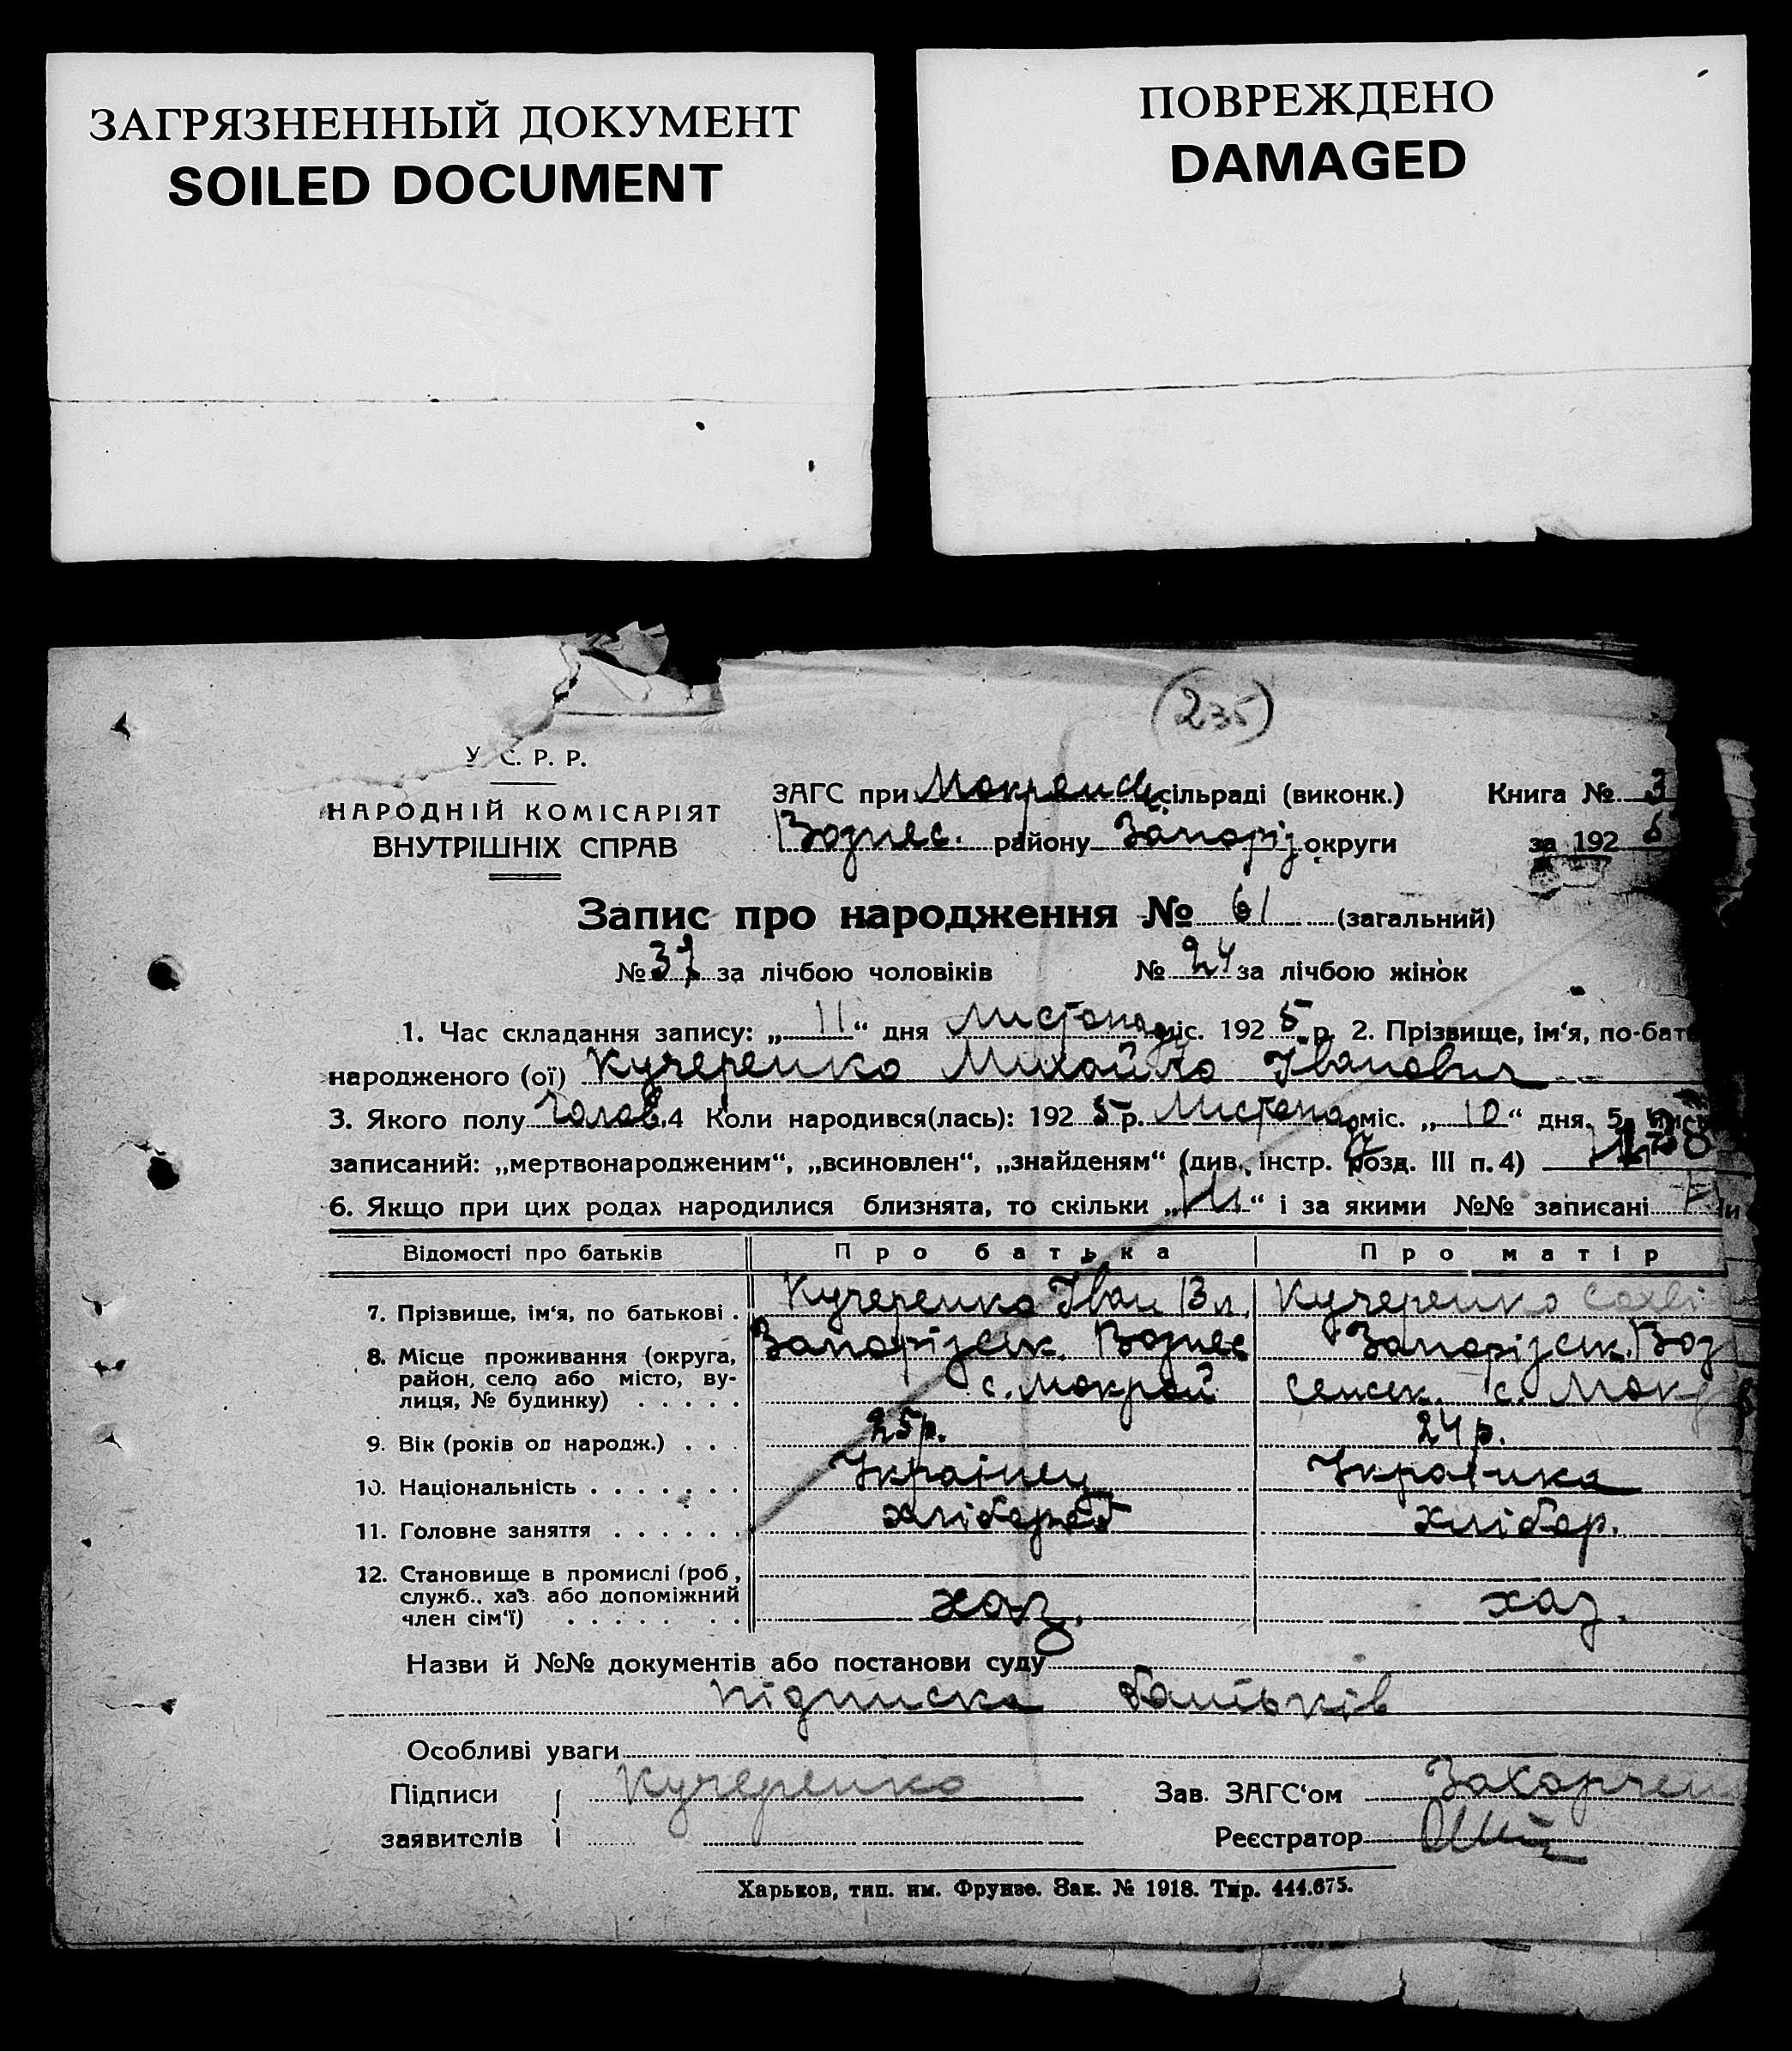 ЗАГРЯЗНЕННЫЙ ДОКУМЕНТ
SOILED DOCUMENT
ПОВРЕЖДЕНО
DAMAGED
(235)
У С. Р. Р.
НАРОДНІЙ КОМІСАРІЯТ
ВНУТРІШНІХ СПРАВ
ЗАГС при Мокрянськ сільраді (виконк.) Книга № 3
Вознес. району Запоріз округи за 192 5
Запис про народження № 61 (загальний)
№ 37 за лічбою чоловіків № 24 за лічбою жінок
1. Час складання запису: „ 11 “ дня Листопад міс. 192 5 р. 2. Прізвище, ім‘я, по-бат
народженого (ої) Кучеренко Михайло Іванович
3. Якого полу чолов. 4 Коли народився(лась): 192 5 р. Листопад міс. „ 10 “ дня. 5.
записаний: „мертвонародженим“, „всиновлен“, „знайденям“ (див. інстр. розд. III п. 4)
6. Якщо при цих родах народилися близнята, то скільки „ “ і за якими №№ записані
Відомості про батьків Про батька Про матір
7. Прізвище, ім‘я, по батькові . Кучеренко Іван Вл. Кучеренко Сохві
8. Місце проживання (округа, Запорізськ. Вознес Запорізськ. Воз
район, село або місто, ву-
лиця, № будинку) . . . . . с. Мокрой сенськ. с. Мок
9. Вік (років од народж.) . . . 25 р. 24 р.
10. Національність . . . . . . . Українец Українка
11. Головне заняття . . . . . . хлібороб хлібор.
12. Становище в промислі (роб,
служб., хаз. або допоміжний
член сім‘ї) . . . . . . . хаз. хаз.
Назви й №№ документів або постанови суду
підписка батьків
Особливі уваги
Підписи Кучеренко Зав. ЗАГС‘ом Захарчен
заявителів Реєстратор
Харьков, тип. им. Фрунзе. Зак. № 1918. Тир. 444.675.